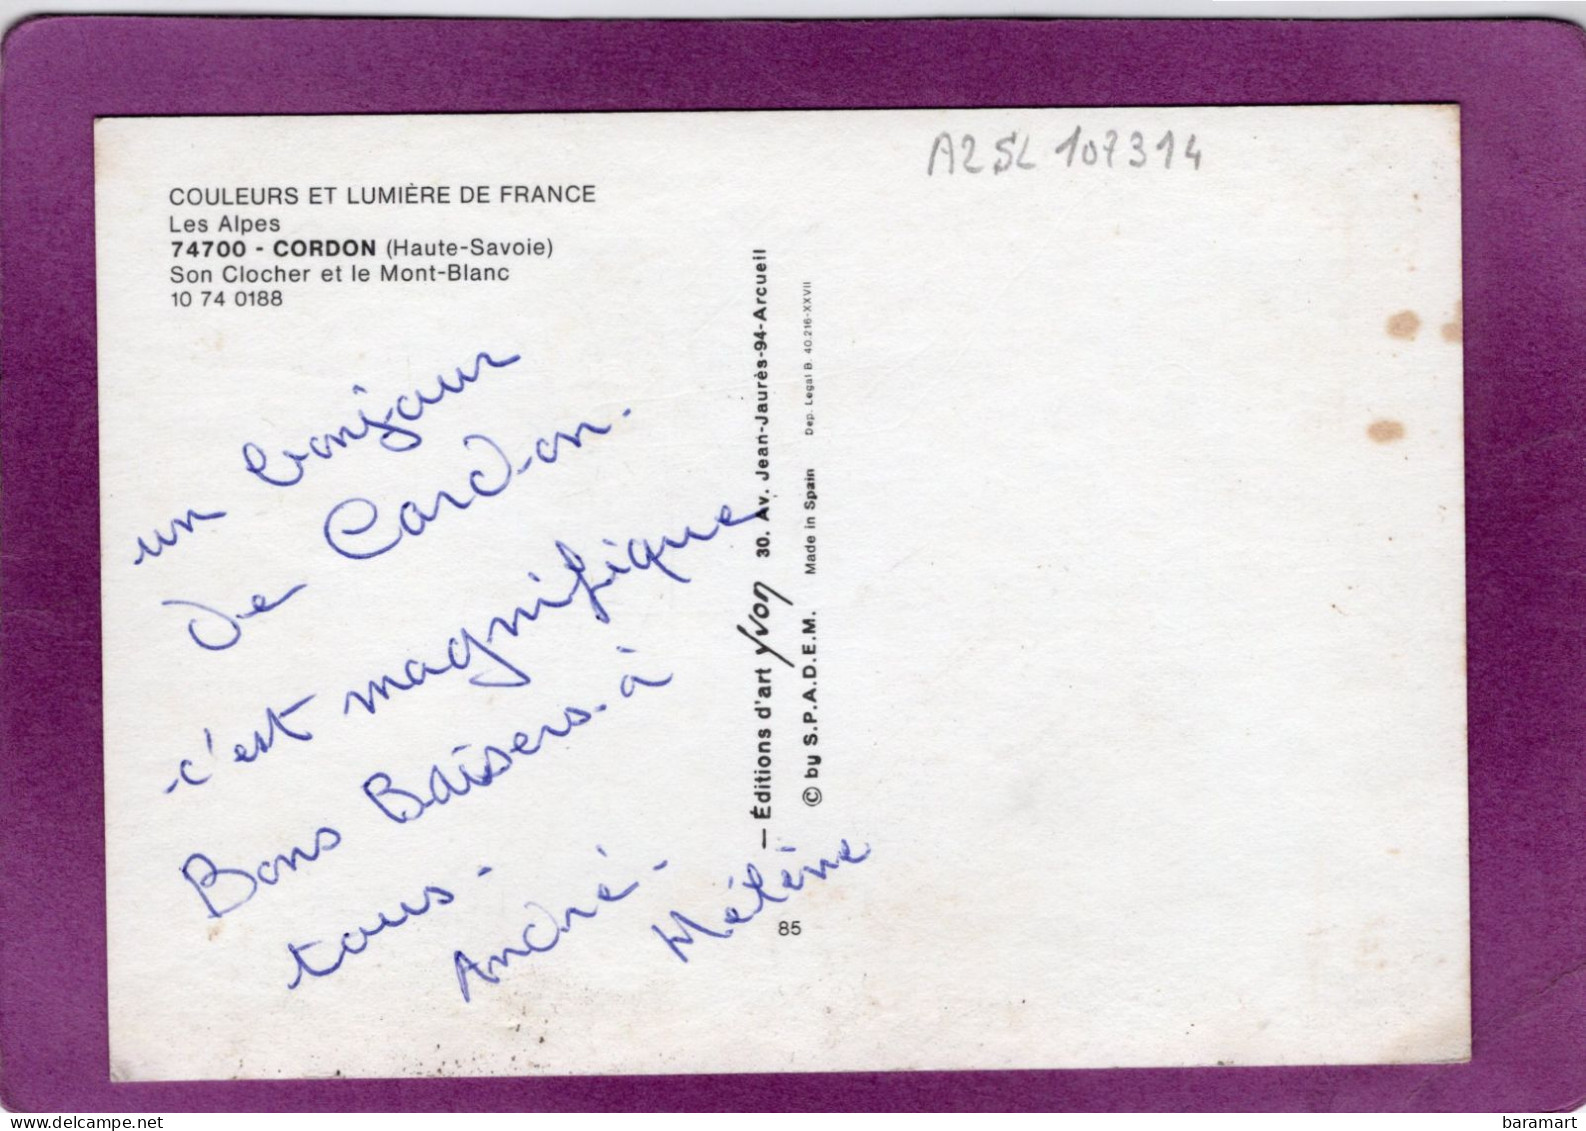 A2SL 107314
COULEURS ET LUMIÈRE DE FRANCE
Les Alpes
74700 - CORDON (Haute-Savoie)
Son Clocher et le Mont-Blanc
10 74 0188
un bonjour
de Cordon.
c'est magnifique
Bons Baisers à
tous.
André. Hélène
— Éditions d'art yvon 30. Av. Jean-Jaurès-94-Arcueil
© by S.P.A.D.E.M. Made in Spain Dep. Legal B. 40.216-XXVII
85
www.delcampe.net
baramart